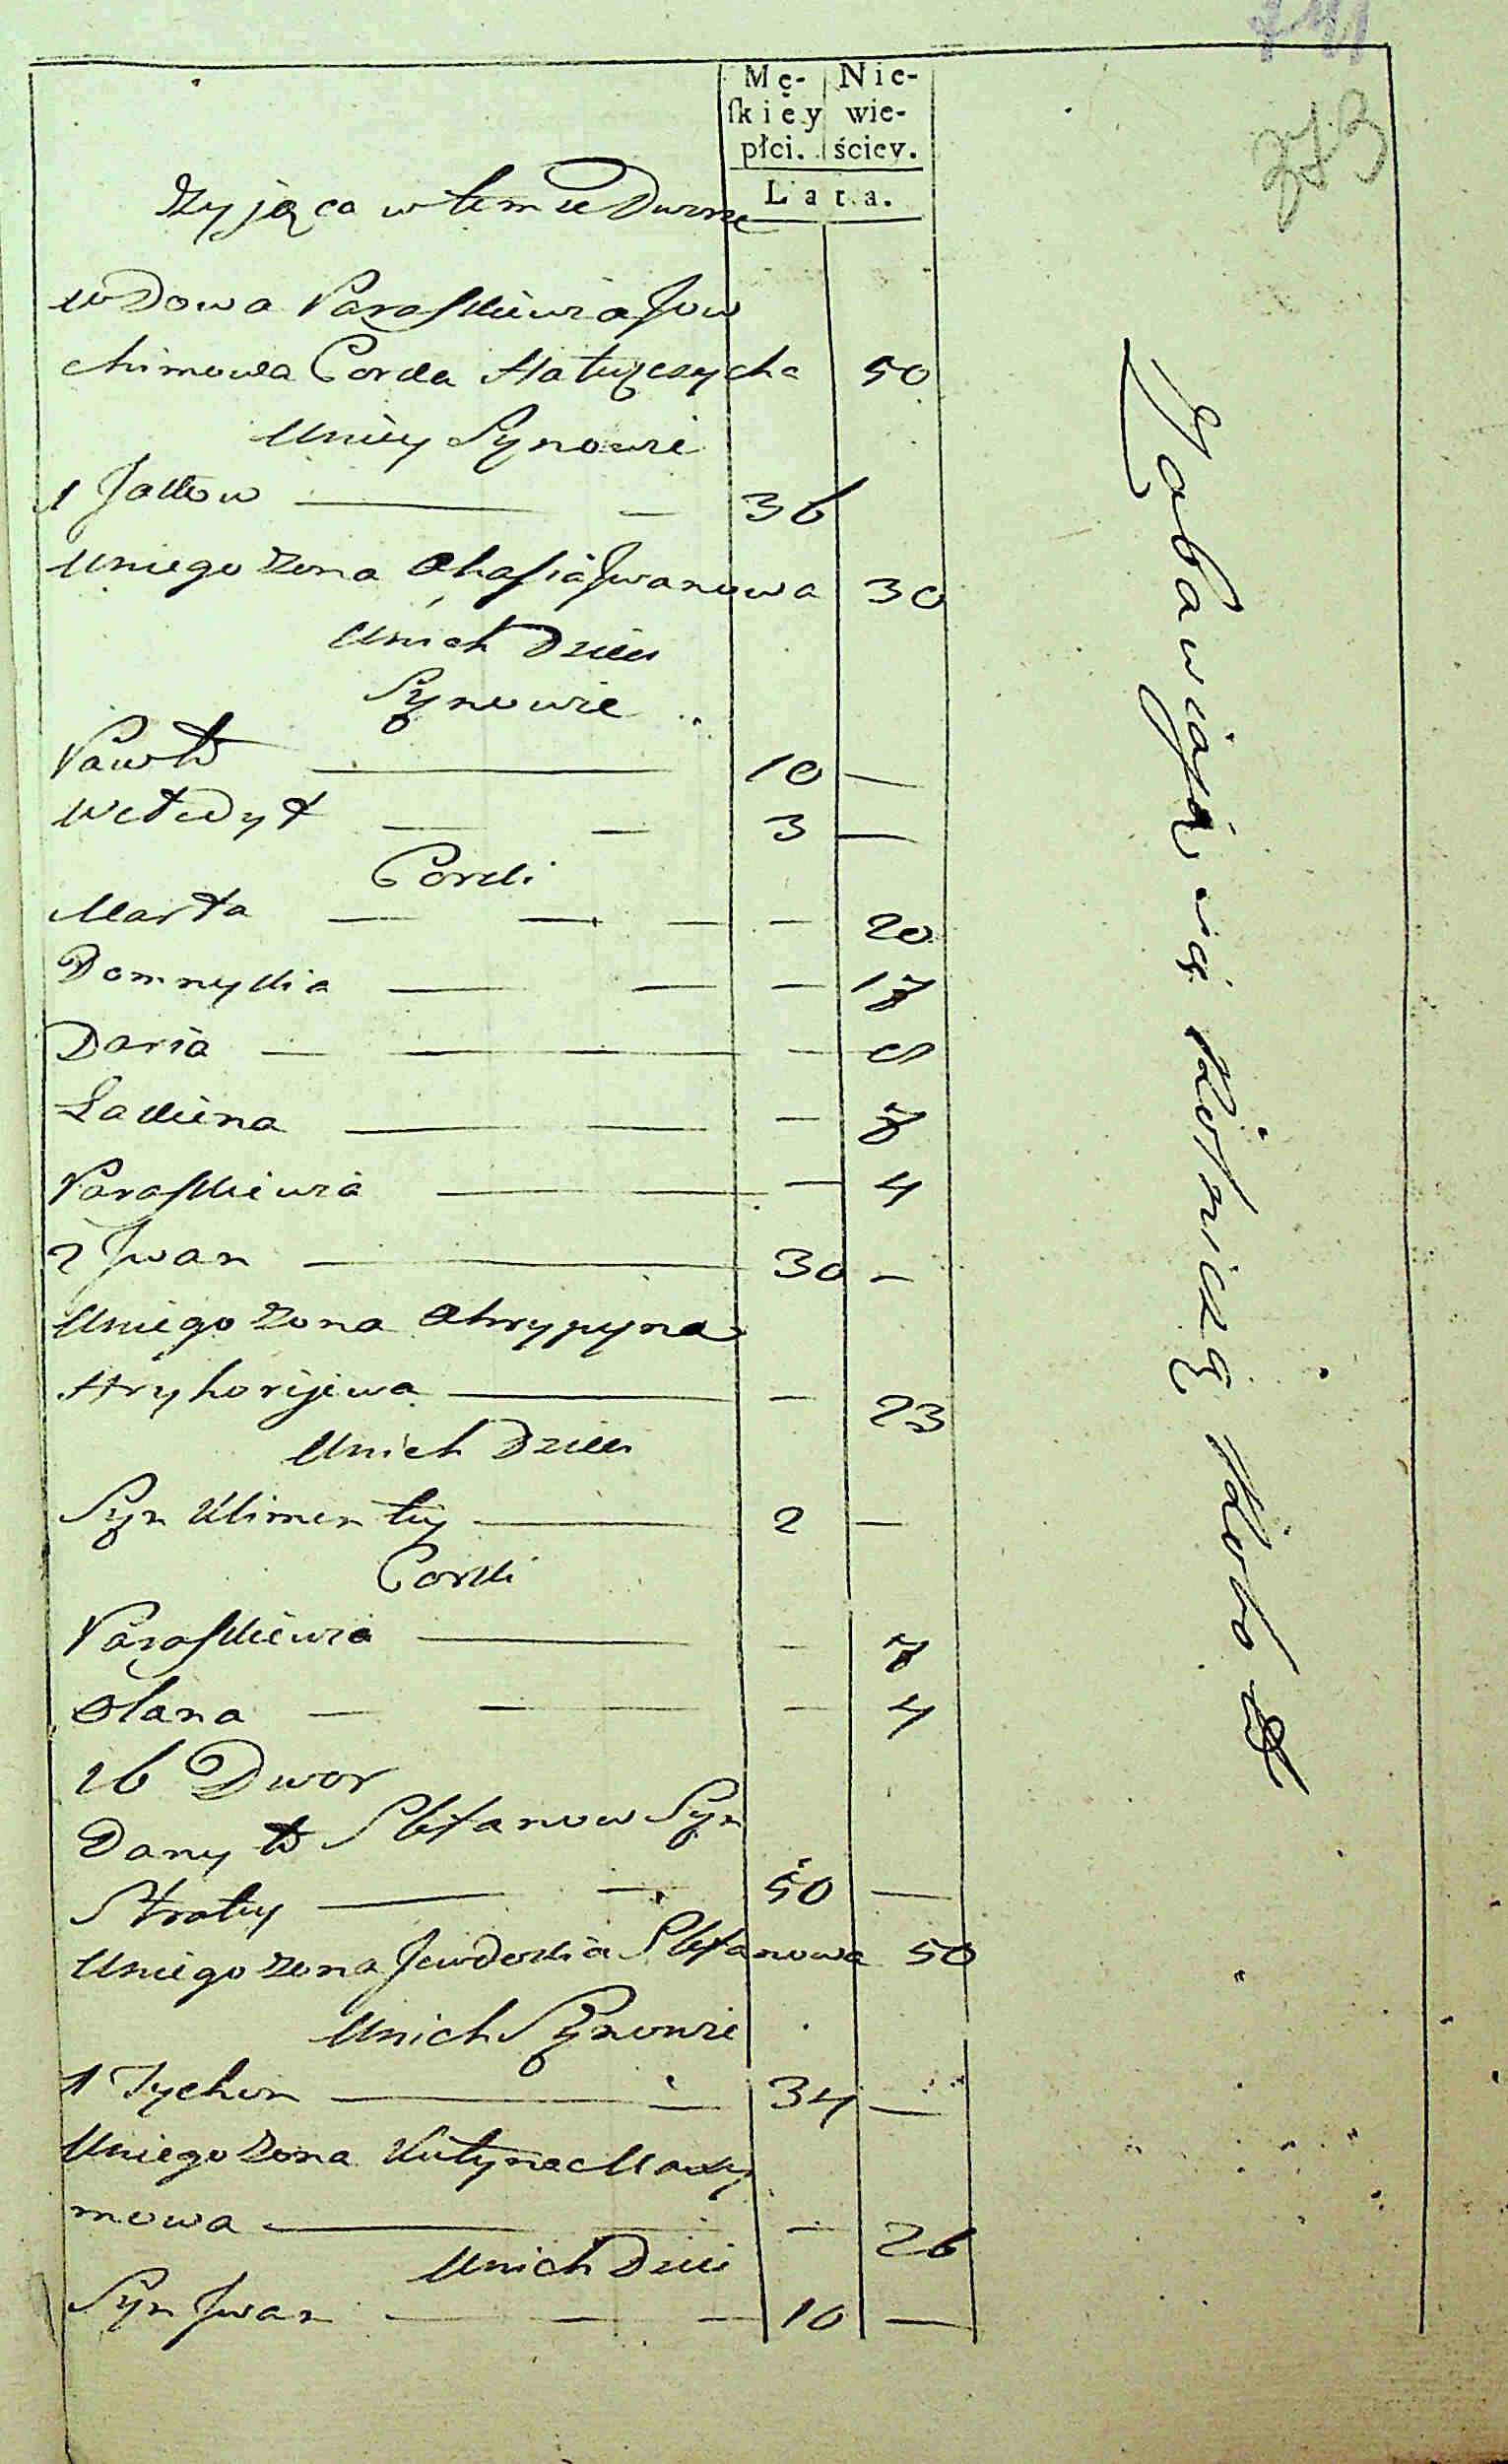 273
Mę- Nie-
ſkiey wie-
płci. ściey.
Lata.
Żyjąca w tem ze Dworze
wdowa Paraskiewia Jow
chimowa Corka Hatuzczycha 50
Uniey Synowie
1 Jakow — — 36
Uniego zona Ohafia Jwanowa 30
Unich Dzieci
Synowie
Pawło — 10 —
Metedyt — — 3 —
Corki
Marta — — — — 20
Domnykia — — — 17
Daria — — — 9
Łakiena — — — 7
Paraskiewia — — 4
2 Jwan — 30 —
Uniego zona Ohrypyna
Hryhorijewa — — 23
Unich Dzieci
Syn Klimentij — 2 —
Corki
Paraskiewia — — 7
Olana — — — 4
16 Dwor
Danyło Stefanow Syn
Stratij — — 50 —
Uniego zona Jewdokia Stefanowa 50
Unich Synowie
1 Tychon — — 34 —
Uniego zona Kulyna Maxy
mowa — — 26
Unich Dzieci
Syn Jwan — — — 10 —
Zabawiają się